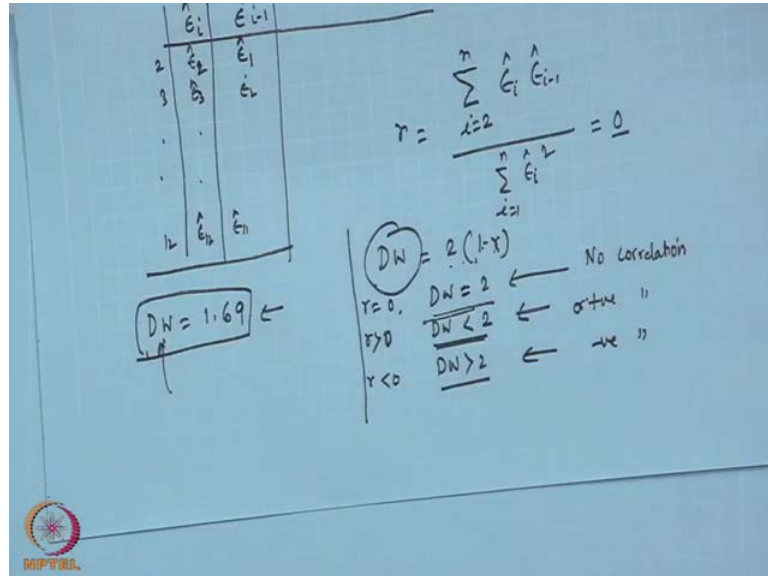 ε̂i ε̂i-1
2 ε̂2 ε̂1
3 ε̂3 ε̂2
.
.
12 ε̂12 ε̂11
DW = 1.69 ←
r = Σ(i=2 to n) ε̂i ε̂i-1 / Σ(i=1 to n) ε̂i² = 0
DW = 2(1-r)
r=0, DW = 2 ← No correlation
r>0 DW < 2 ← +ve "
r<0 DW > 2 ← -ve "
NPTEL